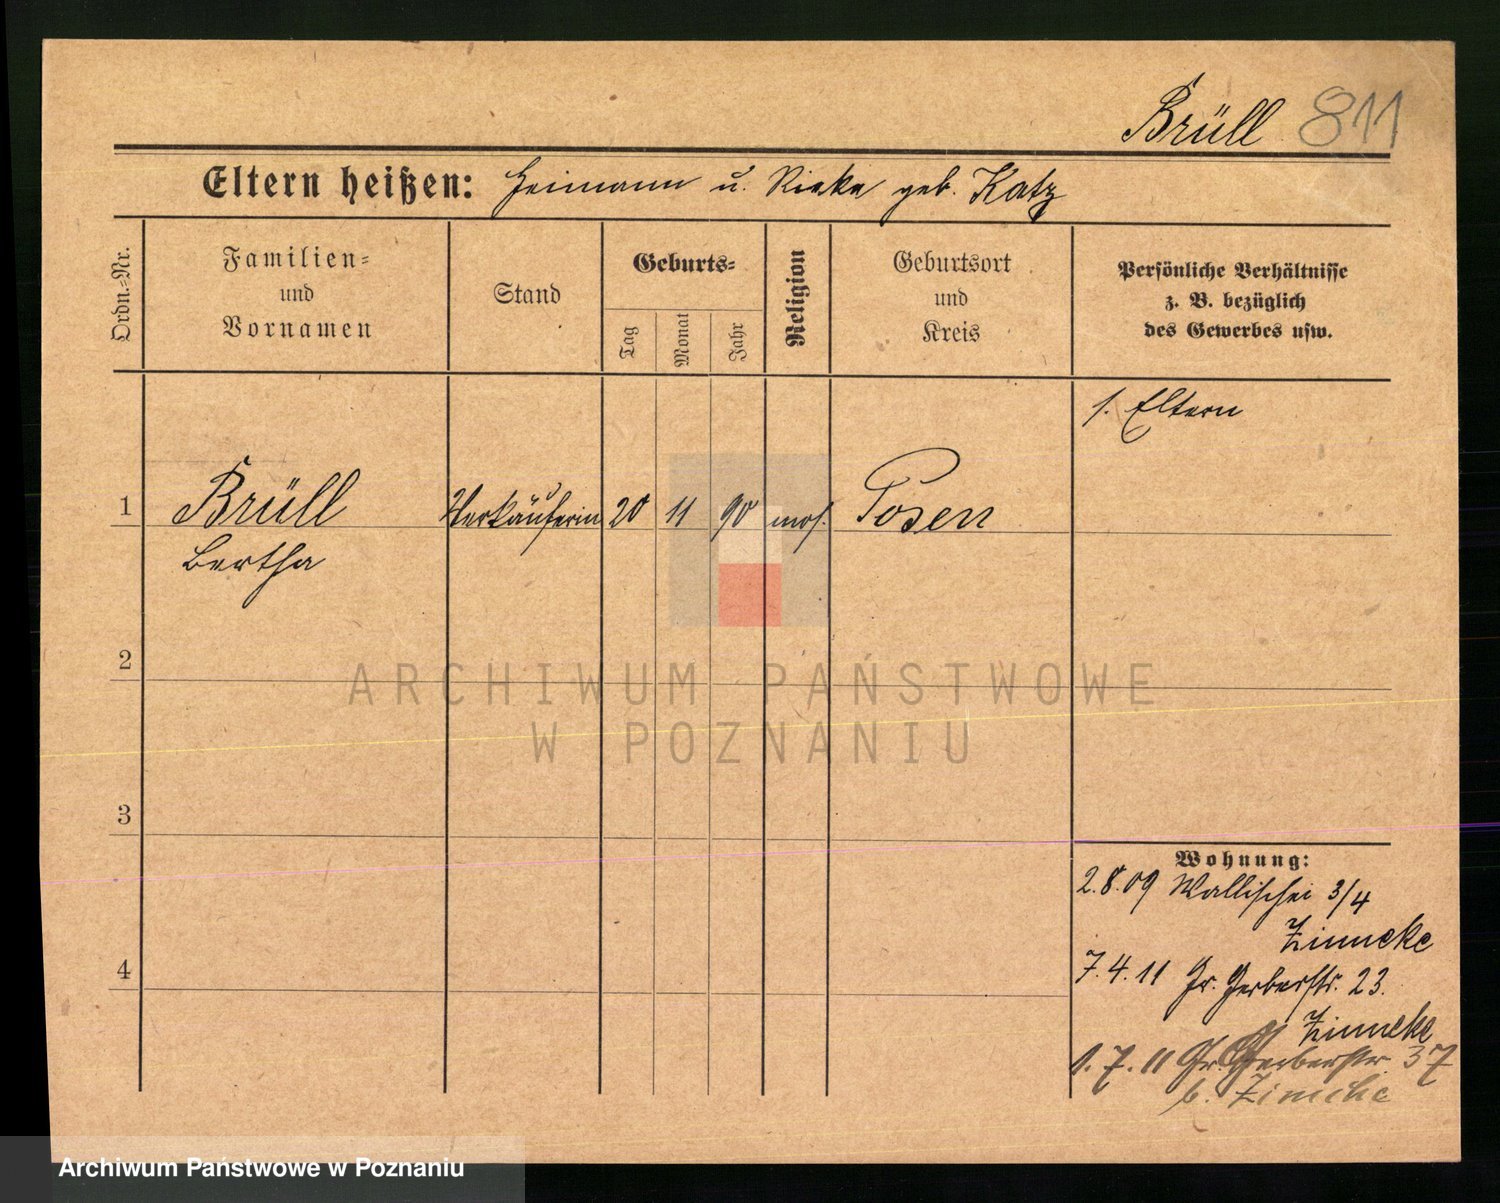 Brüll 811
Eltern heißen: Heimann u. Rieke geb. Katz
Ordn.-Nr.
Familien-
und
Vornamen
Stand
Geburts-
Tag
Monat
Jahr
Religion
Geburtsort
und
Kreis
Persönliche Verhältnisse
z. B. bezüglich
des Gewerbes usw.
s. Eltern
1 Brüll Verkäuferin 20 11 90 mos. Posen
Bertha
2
3
4
Wohnung:
2.8.09 Wallischei 3/4
Zinneke
7.4.11 Gr. Gerberstr. 23.
Zinneke
1.7.11 Gr. Gerberstr. 37
b. Zinneke
ARCHIWUM PAŃSTWOWE
W POZNANIU
Archiwum Państwowe w Poznaniu